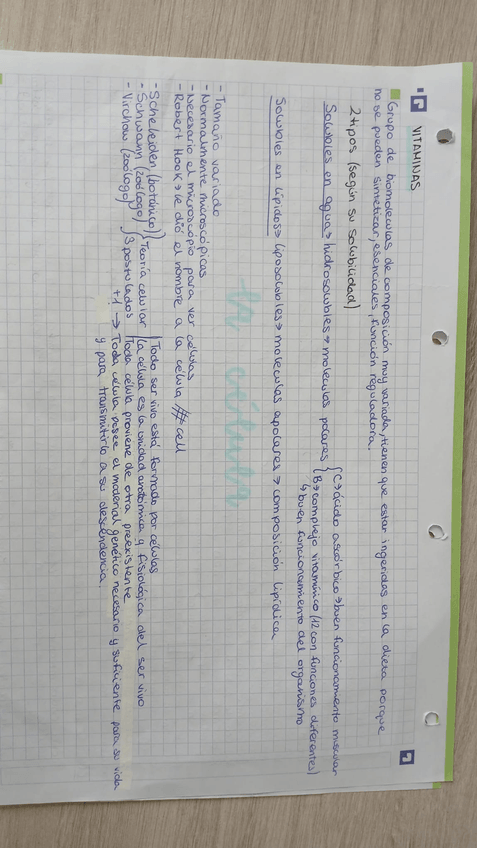 VITAMINAS
Grupo de biomoléculas de composición muy variada, tienen que estar ingeridas en la dieta porque
no se pueden sintetizar, esenciales, función reguladora.
2 tipos (según su solubilidad)
Solubles en agua → hidrosolubles → moléculas polares { C → ácido ascórbico → buen funcionamiento muscular
B → complejo vitamínico (12 con funciones diferentes)
↳ buen funcionamiento del organismo
Solubles en lípidos → liposolubles → moléculas apolares → composición lipídica
la célula
- Tamaño variado
- Normalmente microscópicas
- Necesario el microscópio para ver células
- Robert Hook → le dió el nombre a la célula cell
- Scheleiden (botánico) } Teoría celular { Todo ser vivo está formado por células
- Schwann (zoólogo) 3 postulados La célula es la unidad anatómica y fisiológica del ser vivo
- Virchow (zoólogo) Toda célula proviene de otra preexistente
+1 → Toda célula posee el material genético necesario y suficiente para su vida
y para transmitirlo a su descendencia.